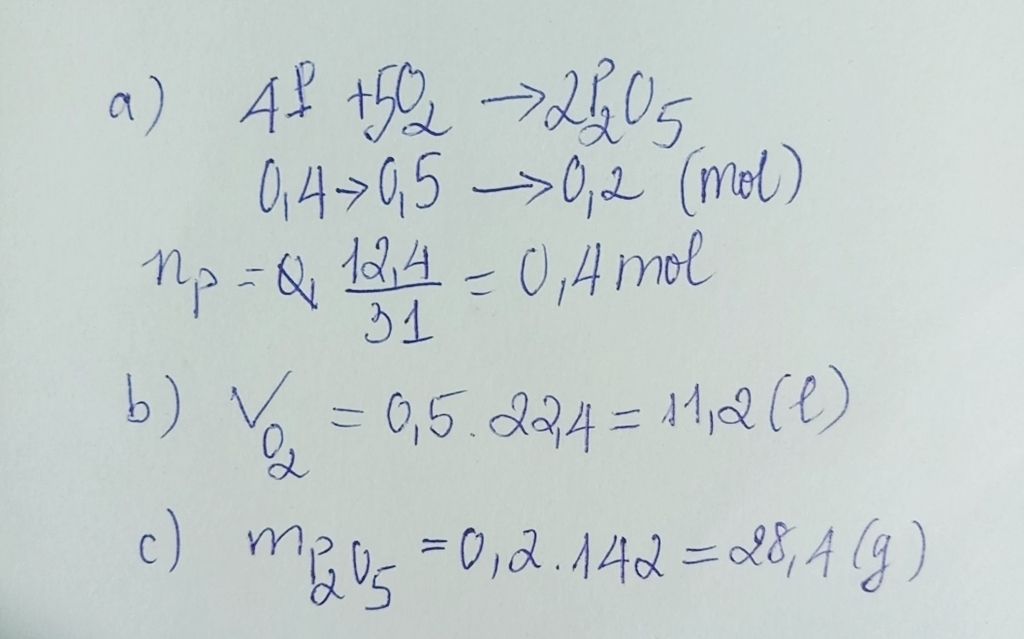 a) 4P + 5O₂ → 2P₂O₅
0,4 → 0,5 → 0,2 (mol)
nₚ = 12,4/31 = 0,4 mol
b) V_O₂ = 0,5 . 22,4 = 11,2 (l)
c) m_P₂O₅ = 0,2 . 142 = 28,4 (g)